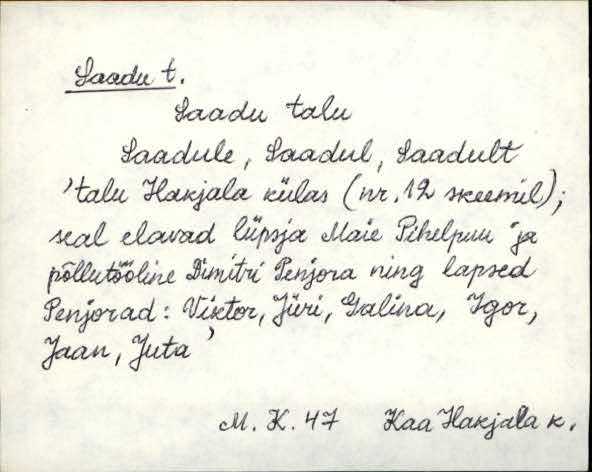 Saadu t.
Saadu talu
Saadule, Saadul, Saadult
'talu Hakjala külas (nr. 12 skeemil);
seal elavad lüpsja Maie Pihelpuu ja
põllutööline Dimitri Penjora ning lapsed
Penjorad: Viktor, Jüri, Galina, Igor,
Jaan, Juta'
M. K. 47 Kaa Hakjala k.